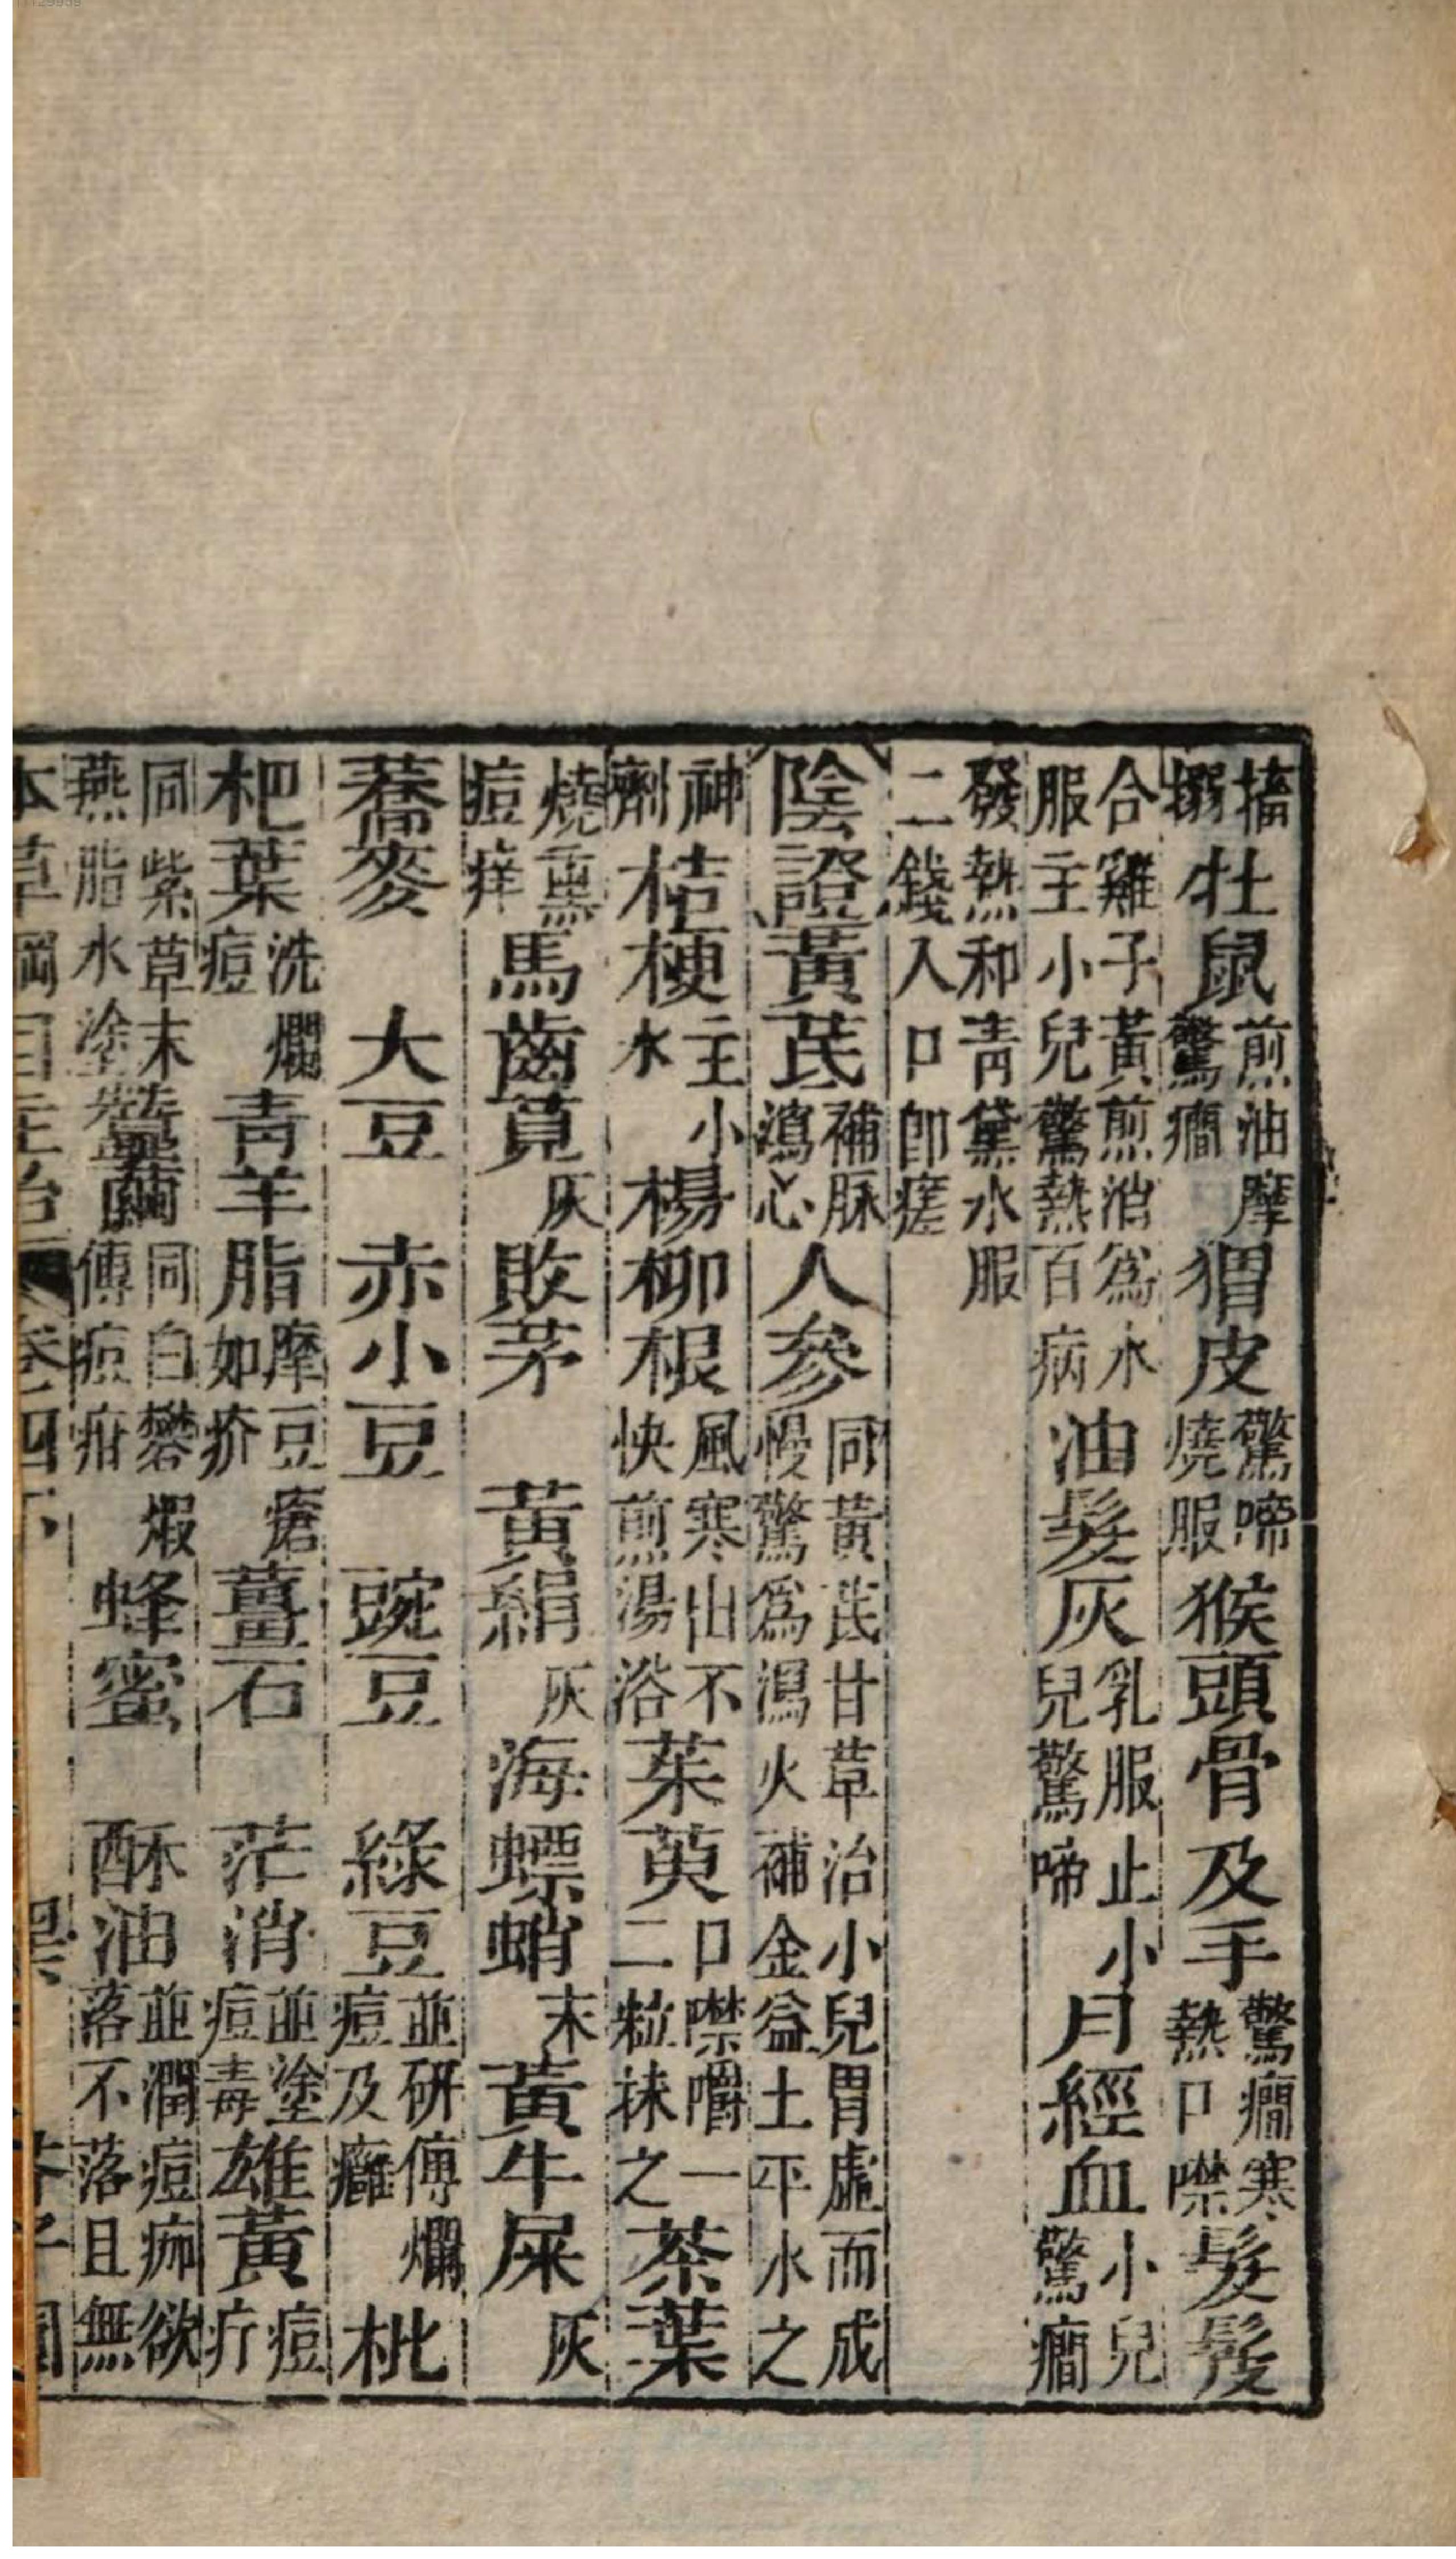 搐搦牡鼠煎油摩驚癇猬皮驚啼燒服猴頭骨及手驚癇寒熱口噤髮髲
合雞子黃煎消為水服主小兒驚熱百病油髮灰乳服止小兒驚啼月經血小兒驚癇
發熱和青黛水服二錢入口卽瘥
陰證黃芪補脉瀉心人參同黃芪甘草治小兒胃虛而成慢驚為瀉火補金益土平水之
神劑桔梗主小水楊柳根風寒出不快煎湯浴茱萸口噤嚼一二粒抹之茶葉
燒熏痘痒馬齒莧灰敗茅黃絹灰海螵蛸末黃牛屎灰
蕎麥 大豆 赤小豆 豌豆 綠豆並研傅爛痘及癰枇
杷葉洗爛痘青羊脂摩豆瘡如疥薑石 茫消並塗痘毒雄黃痘疔
同紫草末燕脂水塗蠶繭同白礬煅傅痘疳蜂蜜 酥油並潤痘痂欲落不落且無
本草綱目主治 卷四下 芥子園